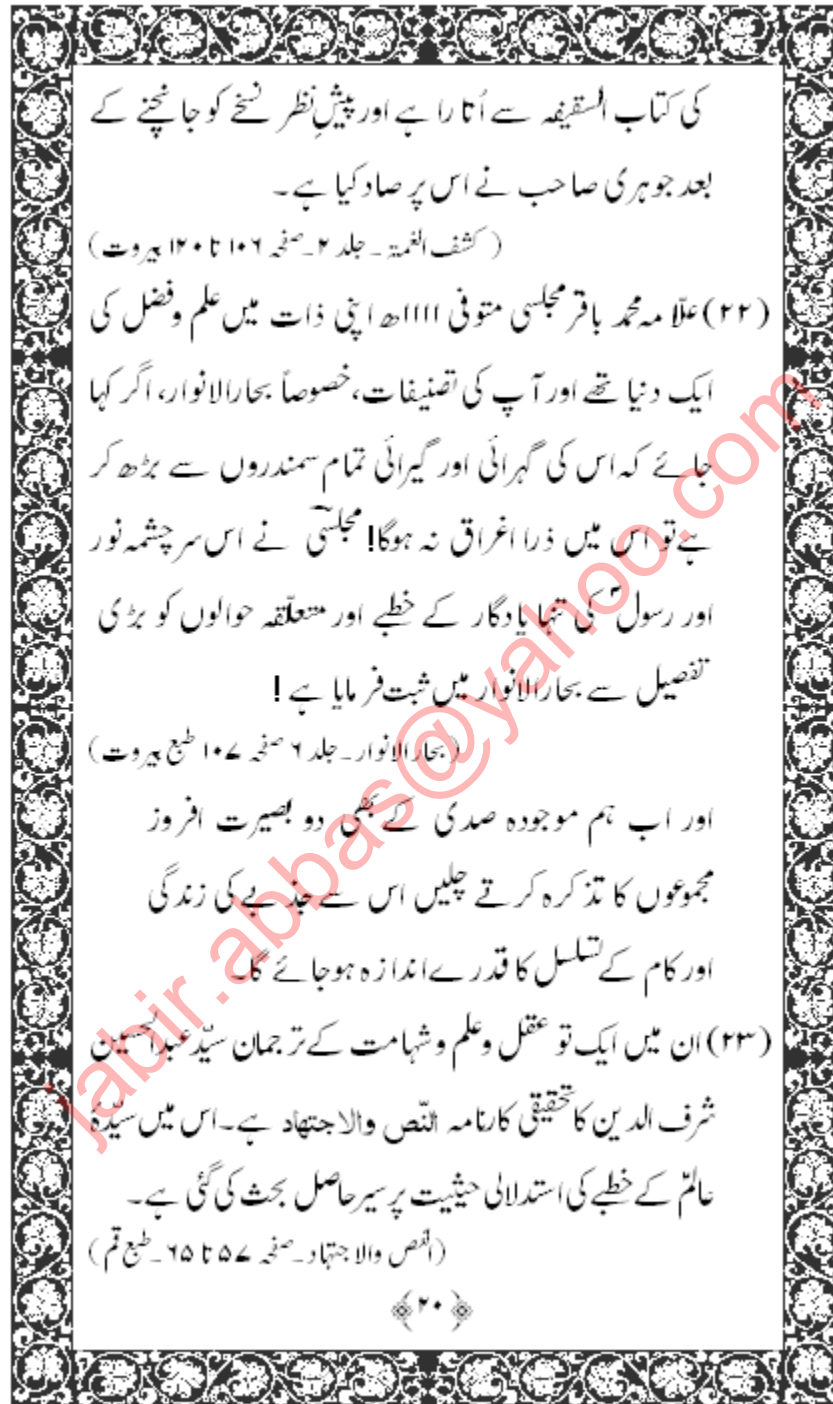 کی کتاب السقیفہ سے اُتارا ہے اور پیشِ نظر نسخے کو جانچنے کے
بعد جوہری صاحب نے اس پر صاد کیا ہے۔
(کشف الغمۃ۔ جلد ۲۔ صفحہ ۱۰۶ تا ۱۲۰ بیروت)
(۲۲) علّامہ محمد باقر مجلسی متوفی ۱۱۱۱ھ اپنی ذات میں علم وفضل کی
ایک دنیا تھے اور آپ کی تصنیفات، خصوصاً بحارالانوار، اگر کہا
جائے کہ اس کی گہرائی اور گیرائی تمام سمندروں سے بڑھ کر
ہے تو اس میں ذرا اغراق نہ ہوگا! مجلسیؒ نے اس سرچشمہ نور
اور رسولؐ کی تنہا یادگار کے خطبے اور متعلّقہ حوالوں کو بڑی
تفصیل سے بحارالانوار میں ثبت فرمایا ہے !
(بحار الانوار۔ جلد ۶ صفحہ ۱۰۷ طبع بیروت)
اور اب ہم موجودہ صدی کے بھی دو بصیرت افروز
مجموعوں کا تذکرہ کرتے چلیں اس سے جذبے کی زندگی
اور کام کے تسلسل کا قدرے اندازہ ہوجائے گا۔
(۲۳) ان میں ایک تو عقل وعلم وشہامت کے ترجمان سیّد عبدالحسین
شرف الدین کا تحقیقی کارنامہ النّص والاجتھاد ہے۔ اس میں سیّدۂ
عالمؑ کے خطبے کی استدلالی حیثیت پر سیر حاصل بحث کی گئی ہے۔
(النص والاجتہاد۔ صفحہ ۵۷ تا ۶۵۔ طبع قم)
﴿۲۰﴾
jabir.abbas@yahoo.com